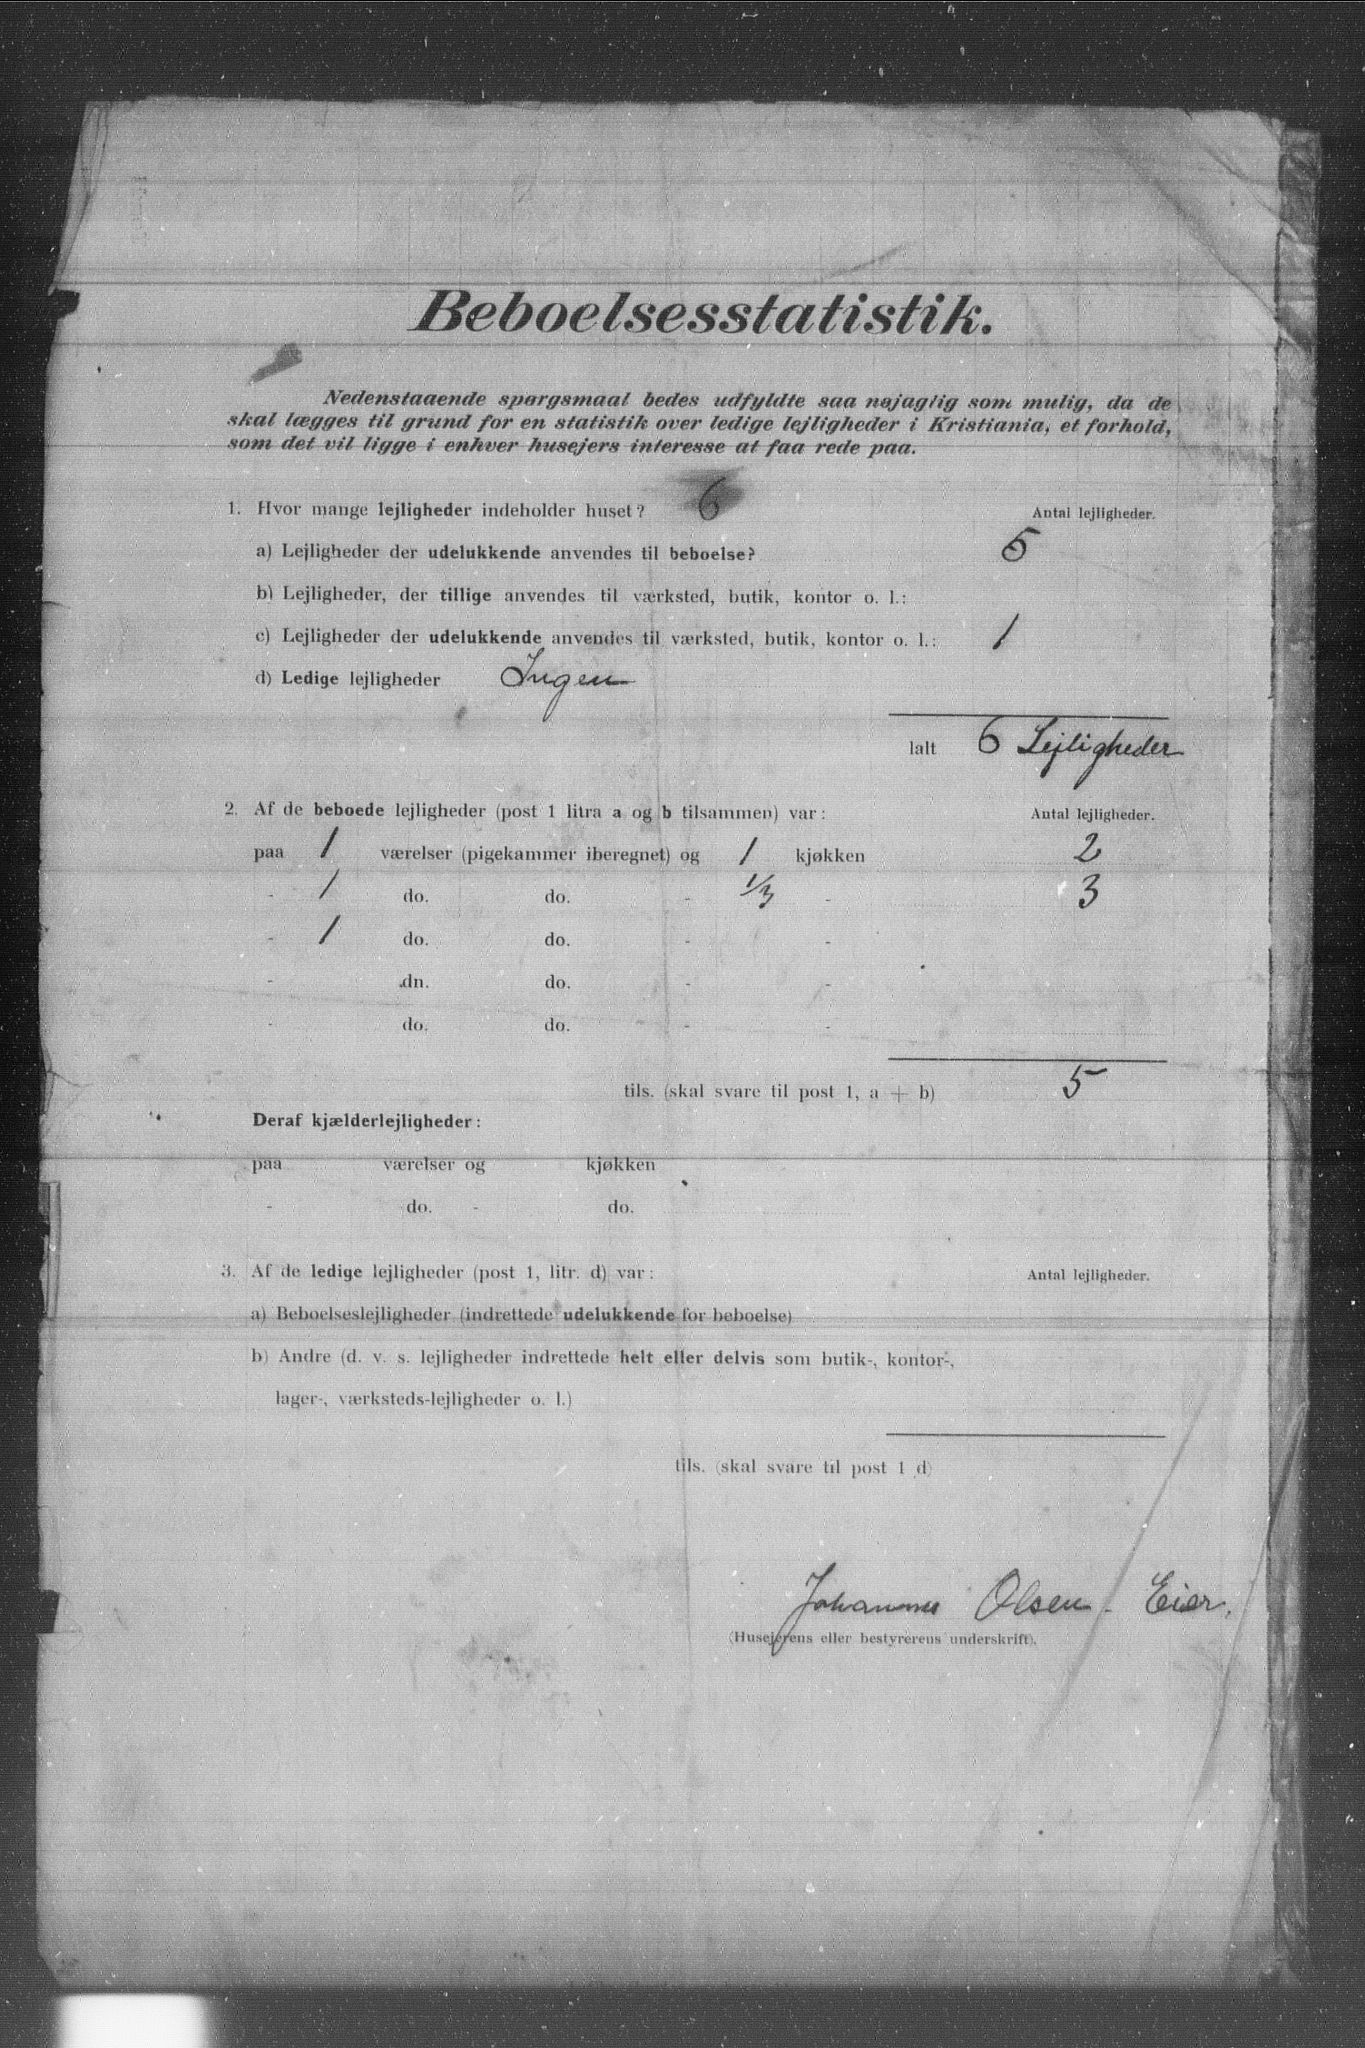 Beboelsesstatistik.
Nedenstaaende spørgsmaal bedes udfyldte saa nøjaglig som mulig, da de
skal lægges til grund for en statistik over ledige lejligheder i Kristiania, et forhold,
som det vil ligge i enhver husejers interesse at faa rede paa.
1. Hvor mange lejligheder indeholder huset? 6 Antal lejligheder.
a) Lejligheder der udelukkende anvendes til beboelse? 5
b) Lejligheder, der tillige anvendes til værksted, butik, kontor o. l.:
c) Lejligheder der udelukkende anvendes til værksted, butik, kontor o. l.: 1
d) Ledige lejligheder Ingen
Ialt 6 Lejligheder
2. Af de beboede lejligheder (post 1 litra a og b tilsammen) var: Antal lejligheder.
paa 1 værelser (pigekammer iberegnet) og 1 kjøkken 2
- 1 do. do. - 1/3 - 3
- 1 do. do. - -
- dn. do. - -
- do. do. - -
tils. (skal svare til post 1, a + b) 5
Deraf kjælderlejligheder:
paa værelser og kjøkken
- do. - do.
3. Af de ledige lejligheder (post 1, litr. d) var: Antal lejligheder.
a) Beboelseslejligheder (indrettede udelukkende for beboelse)
b) Andre (d. v. s. lejligheder indrettede helt eller delvis som butik-, kontor-,
lager-, værksteds-lejligheder o. l.)
tils. (skal svare til post 1 d)
Johannes Olsen. Eier.
(Husejerens eller bestyrerens underskrift).